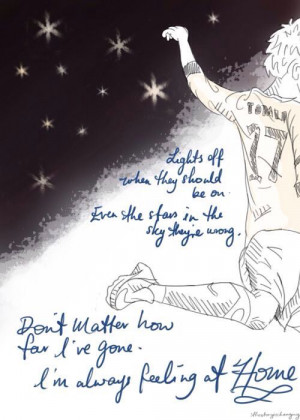 TOMLI
17
Lights off
when they should
be on.
Even the stars in the
sky they're wrong.
Don't Matter how
far I've gone.
I'm always feeling at Home